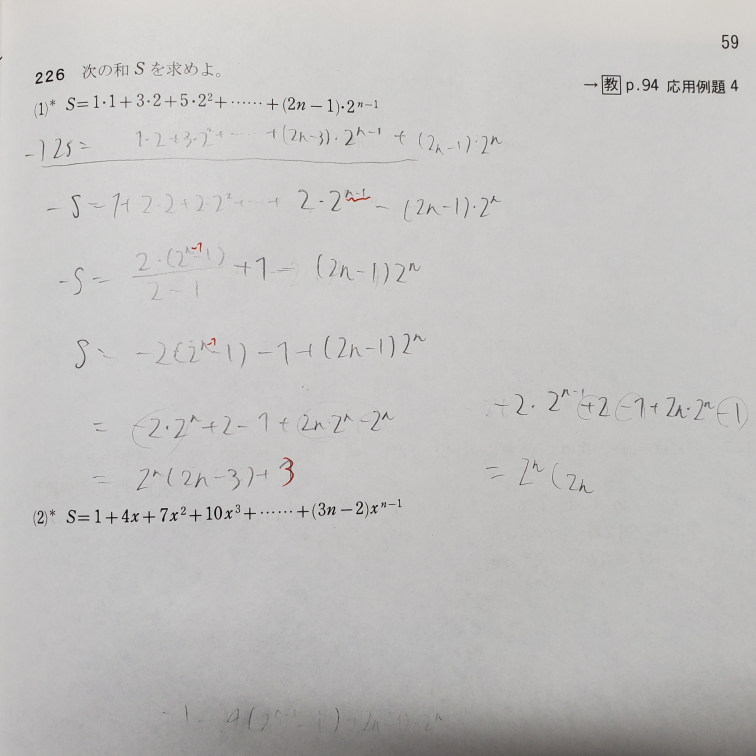 59
226 次の和 S を求めよ。
→ 教 p.94 応用例題 4
(1)* S=1・1+3・2+5・2²+……+(2n−1)・2ⁿ⁻¹
-) 2S= 1・2+3・2²+…+(2n-3)・2ⁿ⁻¹+(2n-1)・2ⁿ
-S=1+2・2+2・2²+…+2・2ⁿ⁻¹-(2n-1)・2ⁿ
-S= 2・(2ⁿ⁻¹-1)/2-1 +1-(2n-1)2ⁿ
S= -2(2ⁿ⁻¹-1)-1+(2n-1)2ⁿ
= -2・2ⁿ+2-1+2n・2ⁿ-2ⁿ
-2・2ⁿ⁻¹+2-1+2n・2ⁿ-1
= 2ⁿ(2n-3)+3
= 2ⁿ(2n
(2)* S=1+4x+7x²+10x³+……+(3n−2)xⁿ⁻¹